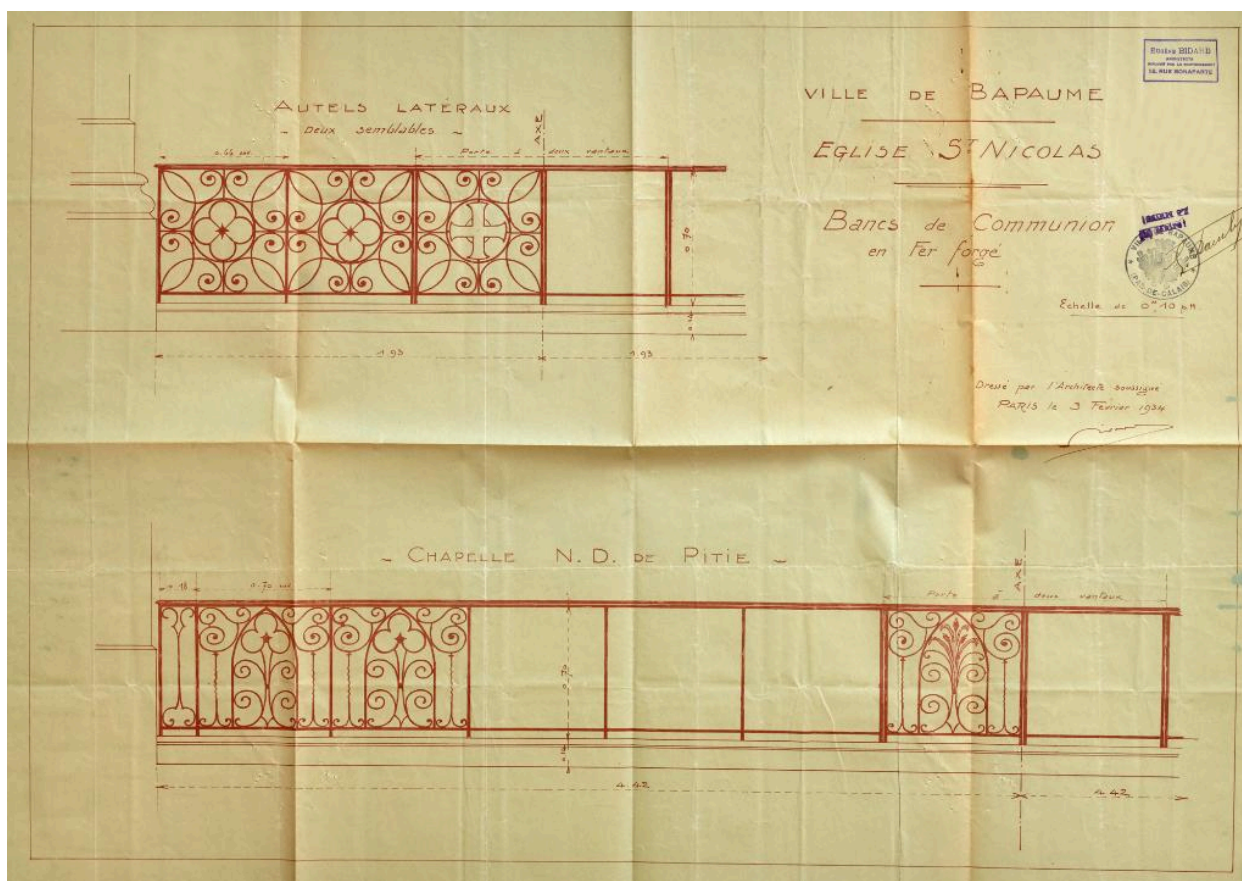 Eugène BIDARD
ARCHITECTE
DIPLÔMÉ PAR LE GOUVERNEMENT
15, RUE BONAPARTE
VILLE DE BAPAUME
EGLISE ST NICOLAS
Bancs de Communion
en Fer forgé
VILLE DE BAPAUME
(PAS-DE-CALAIS)
Echelle de 0m10 p.m.
Dressé par l'Architecte soussigné
PARIS le 3 Février 1934
AUTELS LATÉRAUX
- Deux semblables -
AXE
Porte à deux vantaux
0.70
1.93
1.93
- CHAPELLE N. D. DE PITIE -
AXE
0.18
0.70
Porte à deux vantaux
0.70
4.42
4.42